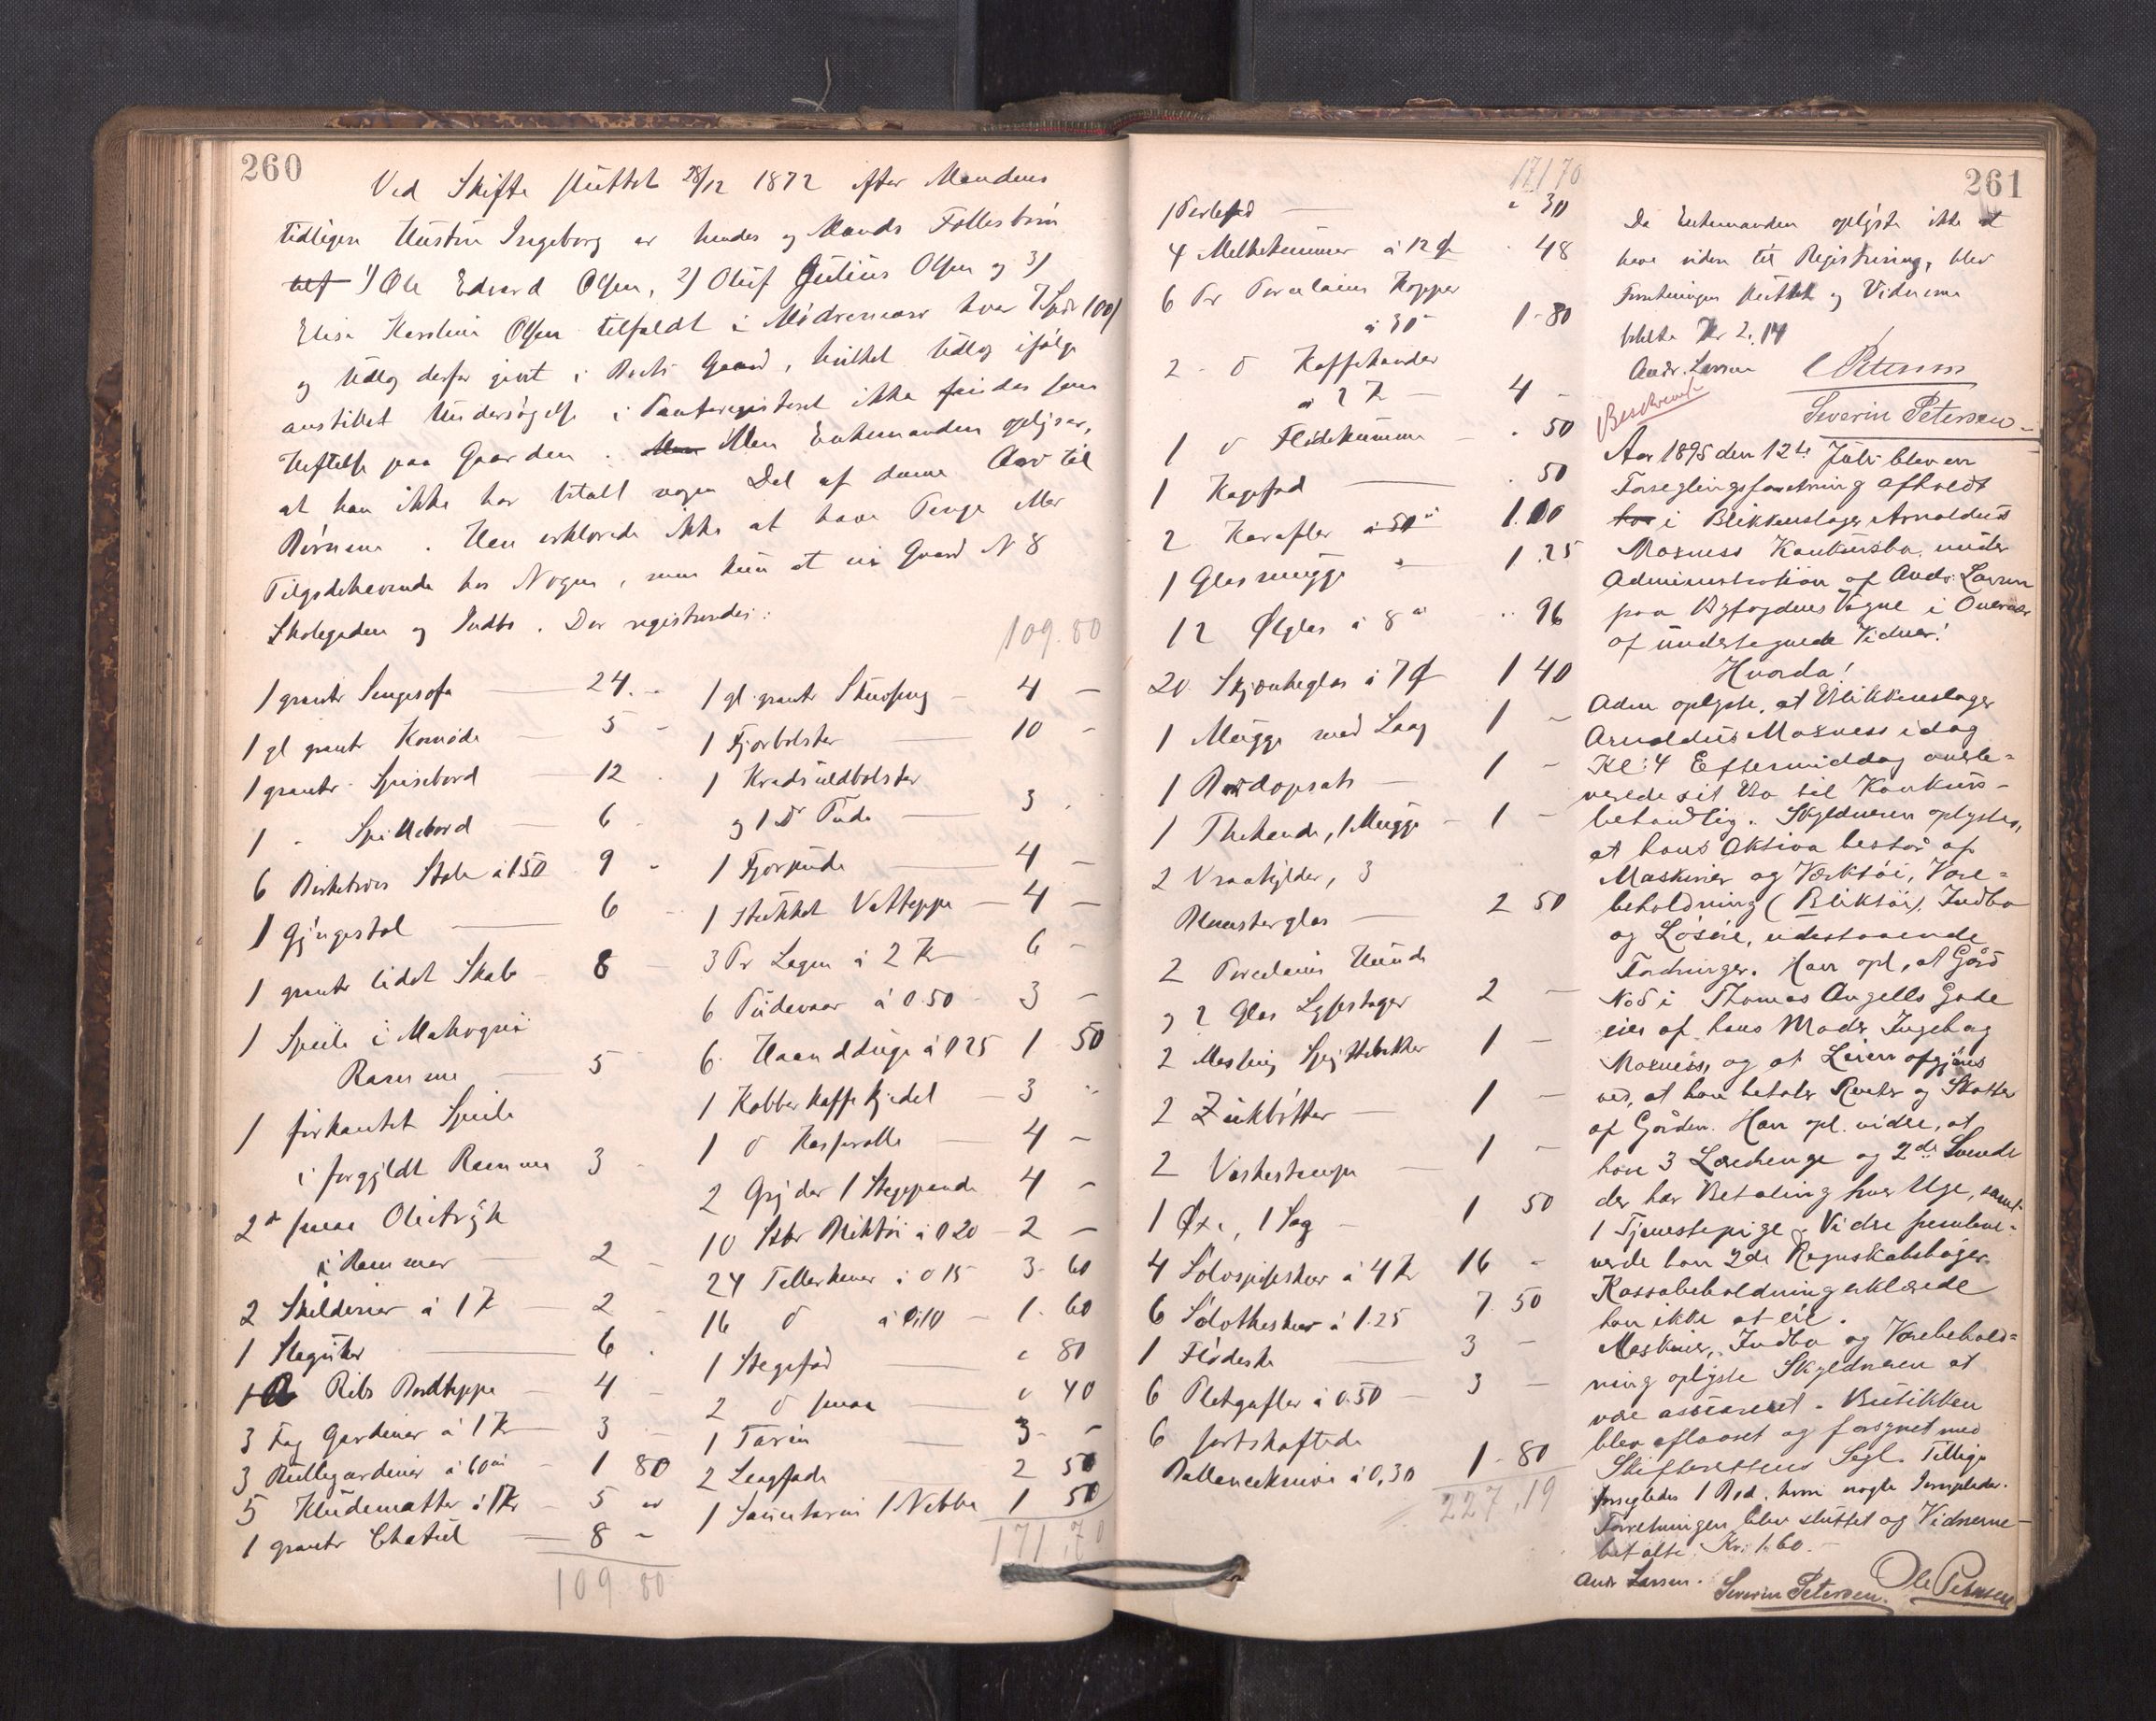 260
Ved Skifte sluttet 28/12 1872 efter Mandens
tidligere Hustru Ingeborg er hendes og Mands Fællesbørn
1) Ole Edvard Olsen, 2) Oluf Julius Olsen og 3)
Elise Karoline Olsen tilfaldt i Mødrenearv hver 7 Spd 100
og Udlæg derfor givet i Boets Gaard, hvilket Udlæg ifølge
anstillet Undersøgelse i Panteregisteret ikke findes som
Heftelse paa Gaarden. Men Enkemanden oplyser,
at han ikke har betalt nogen Del af denne Arv til
Børnene. Han erklærede ikke at have Penge eller
Tilgodehavende hos Nogen, men kun at eie Gaard N 8
Skolegaden og Indbo. Der registreredes:
109.80
1 grantr Sengesofa 24. -
1 gl grantr Komode 5 -
1 grantr Spisebord 12 -
1 " Spillebord 6 -
6 Birketræs Stole a 1.50 9 -
1 Gyngestol 6 -
1 grantr lidet Skab 8 -
1 Speile i Mahogni
Ramme 5 -
1 firkantet Speile
i forgyldt Ramme 3 -
2 smaa Olietryk
i Rammer 2 -
2 Skilderier à 1 Kr 2 -
1 Slaguhr 6 -
1 Ribs Bordteppe 4 -
3 Fag Gardiner à 1 Kr 3 -
3 Rullegardiner à 60 1 80
5 Kludematter à 1 Kr 5 -
1 grantr Chatul 8 -
109.80
1 gl. grantr Skuvseng 4 -
1 Fjærbolster 10 -
1 Krøduldbolster
og 1 Do Pude 3 -
1 Fjærpude 4 -
1 stukket Vatteppe 4 -
3 Pr Lagen à 2 Kr 6 -
6 Pudevaar à 0.50 3 -
6 Haandduge à 0 25 1 50
1 Kobber kaffekjedel 3 -
1 do Kasserolle 4 -
2 Gryder 1 Stegepande 4 -
10 Stkr Bliktøi à 0 20 2 -
24 Tallerkener à 0 15 3. 60
16 do à 0.10 1. 60
1 Stegefad " 80
2 do smaa " 40
1 Tarin 3. -
2 Laagfade 2 50
1 Saucetarin 1 Nebba 1 50
171,70
171 70
1 Perlefad " 30
4 Melkekummer à 12 Ø " 48
6 Pr Porcelains Kopper
à 30 1 - 80
2 do Kaffekander
à 2 K 4 -
1 do Flødekumme " 50
1 Kagefad " 50
2 Karafler à 50 1.00
1 Glasmugge 1.25
12 Ølglas à 8 " 96
20 Skjænkeglas à 7 Ø 1 40
1 Mugge med Laag 1 -
1 Bordopsats 1 -
1 Thekande, 1 Mugge 1 -
2 Vraahylder, 3
Blomsterglas 2 50
2 Porcelains Hunde
og 2 Glas Lysestager 2 -
2 Messing Spyttebakker 1 -
2 Zinkbøtter 1 -
2 Vaskestampe 1 -
1 Øxe, 1 Sag 1 50
4 Sølvspiseskeer à 4 Kr 16 -
6 Sølvtheskeer à 1.25 7. 50
1 Flødeske 3 -
6 Pletgafler à 0.50 3 -
6 sortskaftede
Ballanceknive à 0,30 1 - 80
227,19
261
Da Enkemanden oplyste ikke at
have videre til Registrering, blev
Forretningen sluttet og Vidnerne
betalte Kr 2.14
Andr. Larsen C Petersen
Severin Petersen
Beskrevet
Aar 1895 den 12te Juli blev en
Forseglingsforretning afholdt
i Blikkenslager Arnoldus
Moxness Konkursbo under
Administration af Andr. Larsen
paa Byfogdens Vegne i Overvær
af undertegnede Vidner!
Hvorda!
Adm oplyste, at Blikkenslager
Arnoldus Moxness idag
Kl: 4 Eftermiddag overle=
verede sit Bo til Konkurs-
behandlig. Skyldneren oplystes,
at hans Aktiva bestod af
Maskiner og Værktøi, Vare=
beholdning (Bliktøi), Indbo
og Løsøre, udestaaende
Fordringer. Han opl, at Gård
No 5 i Thomas Angells Gade
eies af hans Moder Ingeborg
Moxness, og at Leien afgjøres
ved, at han betaler Renter og Skatter
af Gården. Han opl. videre, at
han 3 Lærdrenge og 2de Svende
der har Betaling hver Uge, samt
1 Tjenestepige. Vidre fremleve=
rede han 2de Regnskabsbøger.
Kassabeholdning erklærede
han ikke at eie.
Maskiner, Indbo og Varebehold=
ning oplyste Skyldneren at
være assureret. Butikken
blev aflaaset og forsynet med
Skifterettens Segl. Tillige
forsegledes 1 Bod, hvori nogle Jernplader.
Forretningen blev sluttet og Vidnerne
betalte Kr: 1.60.
Andr Larsen. Severin Petersen. Ole Petersen